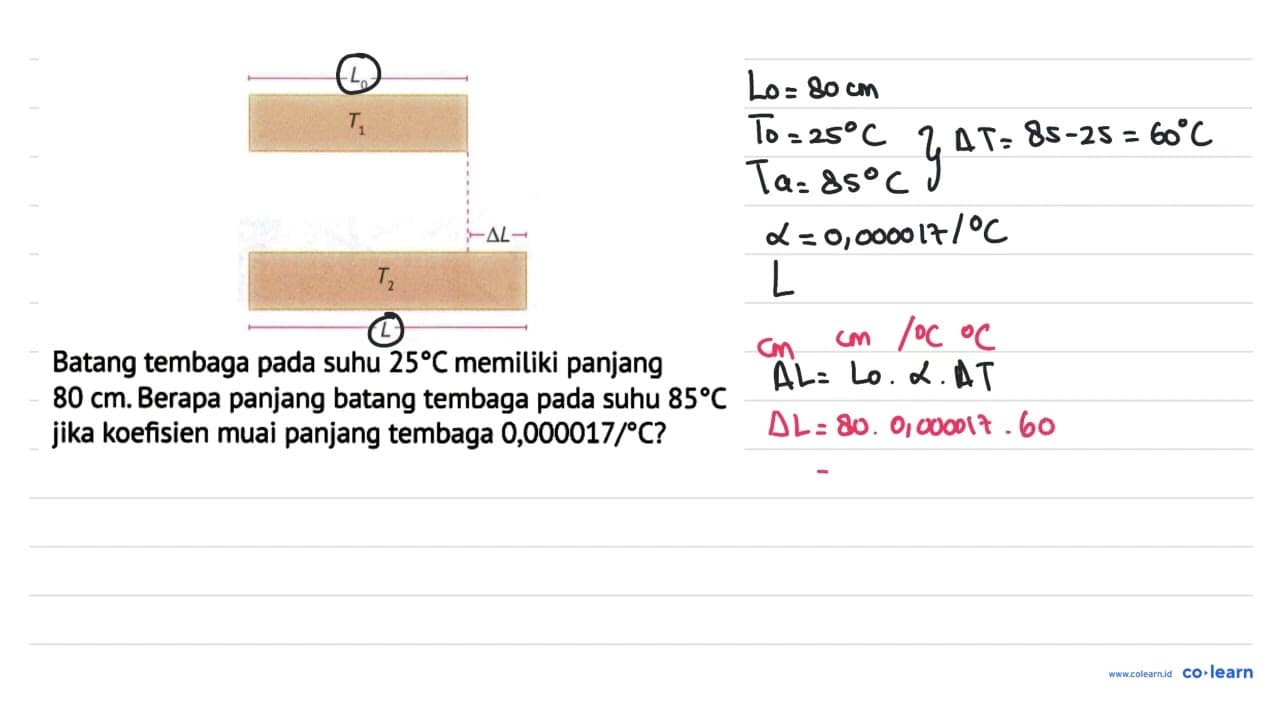 L₀
T₁
ΔL
T₂
L
Batang tembaga pada suhu 25°C memiliki panjang
80 cm. Berapa panjang batang tembaga pada suhu 85°C
jika koefisien muai panjang tembaga 0,000017/°C?
Lo = 80 cm
To = 25°C } ΔT = 85-25 = 60°C
Ta = 85°C
α = 0,000017/°C
L
cm cm /°C °C
ΔL = Lo . α . ΔT
ΔL = 80 . 0,000017 . 60
=
www.colearn.id co·learn